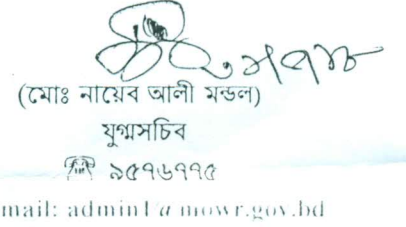 (মোঃ নায়েব আলী মন্ডল)
যুগ্মসচিব
☎ ৯৫৭৬৭৭৫
mail: admin1@mowr.gov.bd